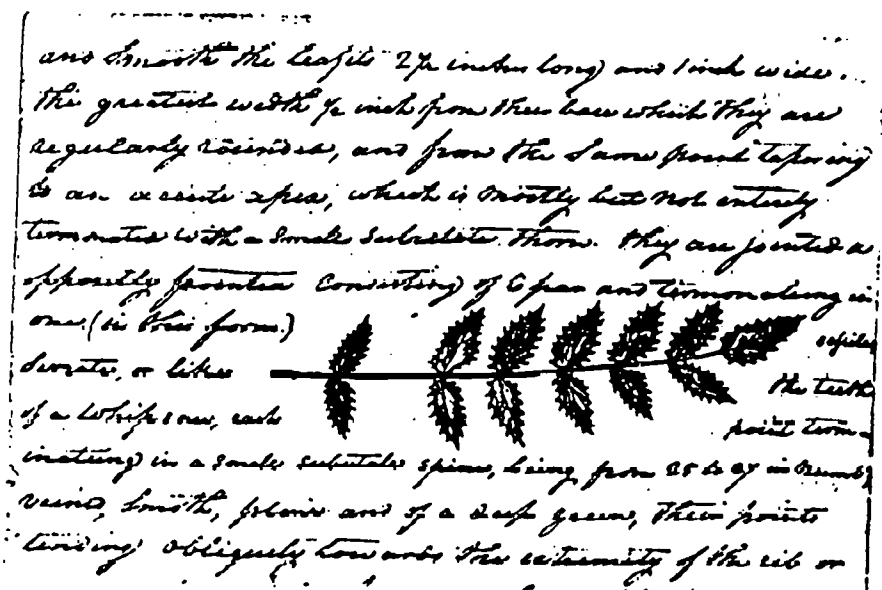 and Smooth the leafits 2½ inches long and 1 inch wide.
the greatest width ½ inch from their base which they are
regularly rounded, and from the same point tapering
to an accute apex, which is mostly but not entirely
terminated with a small subulate thorn. they are jointed &
oppositly pinnate consisting of 6 pair and terminateing in
one (in this form.) sessile
serrate, or like the teeth
of a whipsaw, each point term-
inateing in a small subulate spine, being from 25 to 27 in numb;
veined, smooth, plane and of a deep green, their points
tending obliquely towards the extremity of the rib or